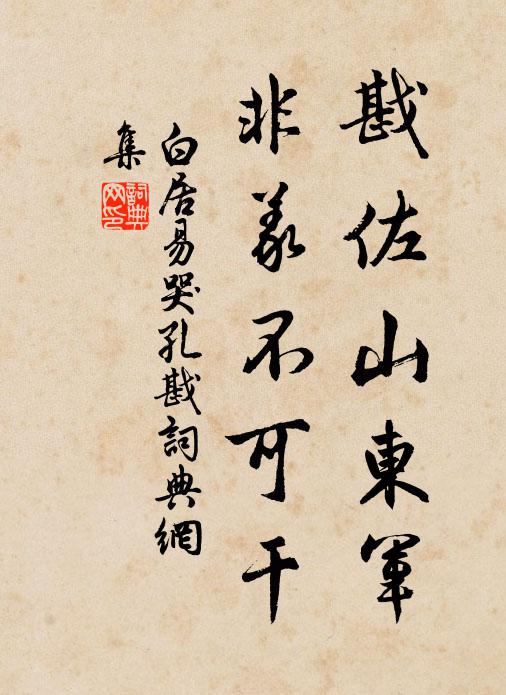 戡佐山東軍
非義不可干
白居易哭孔戡詞典網
集
詞典
网印